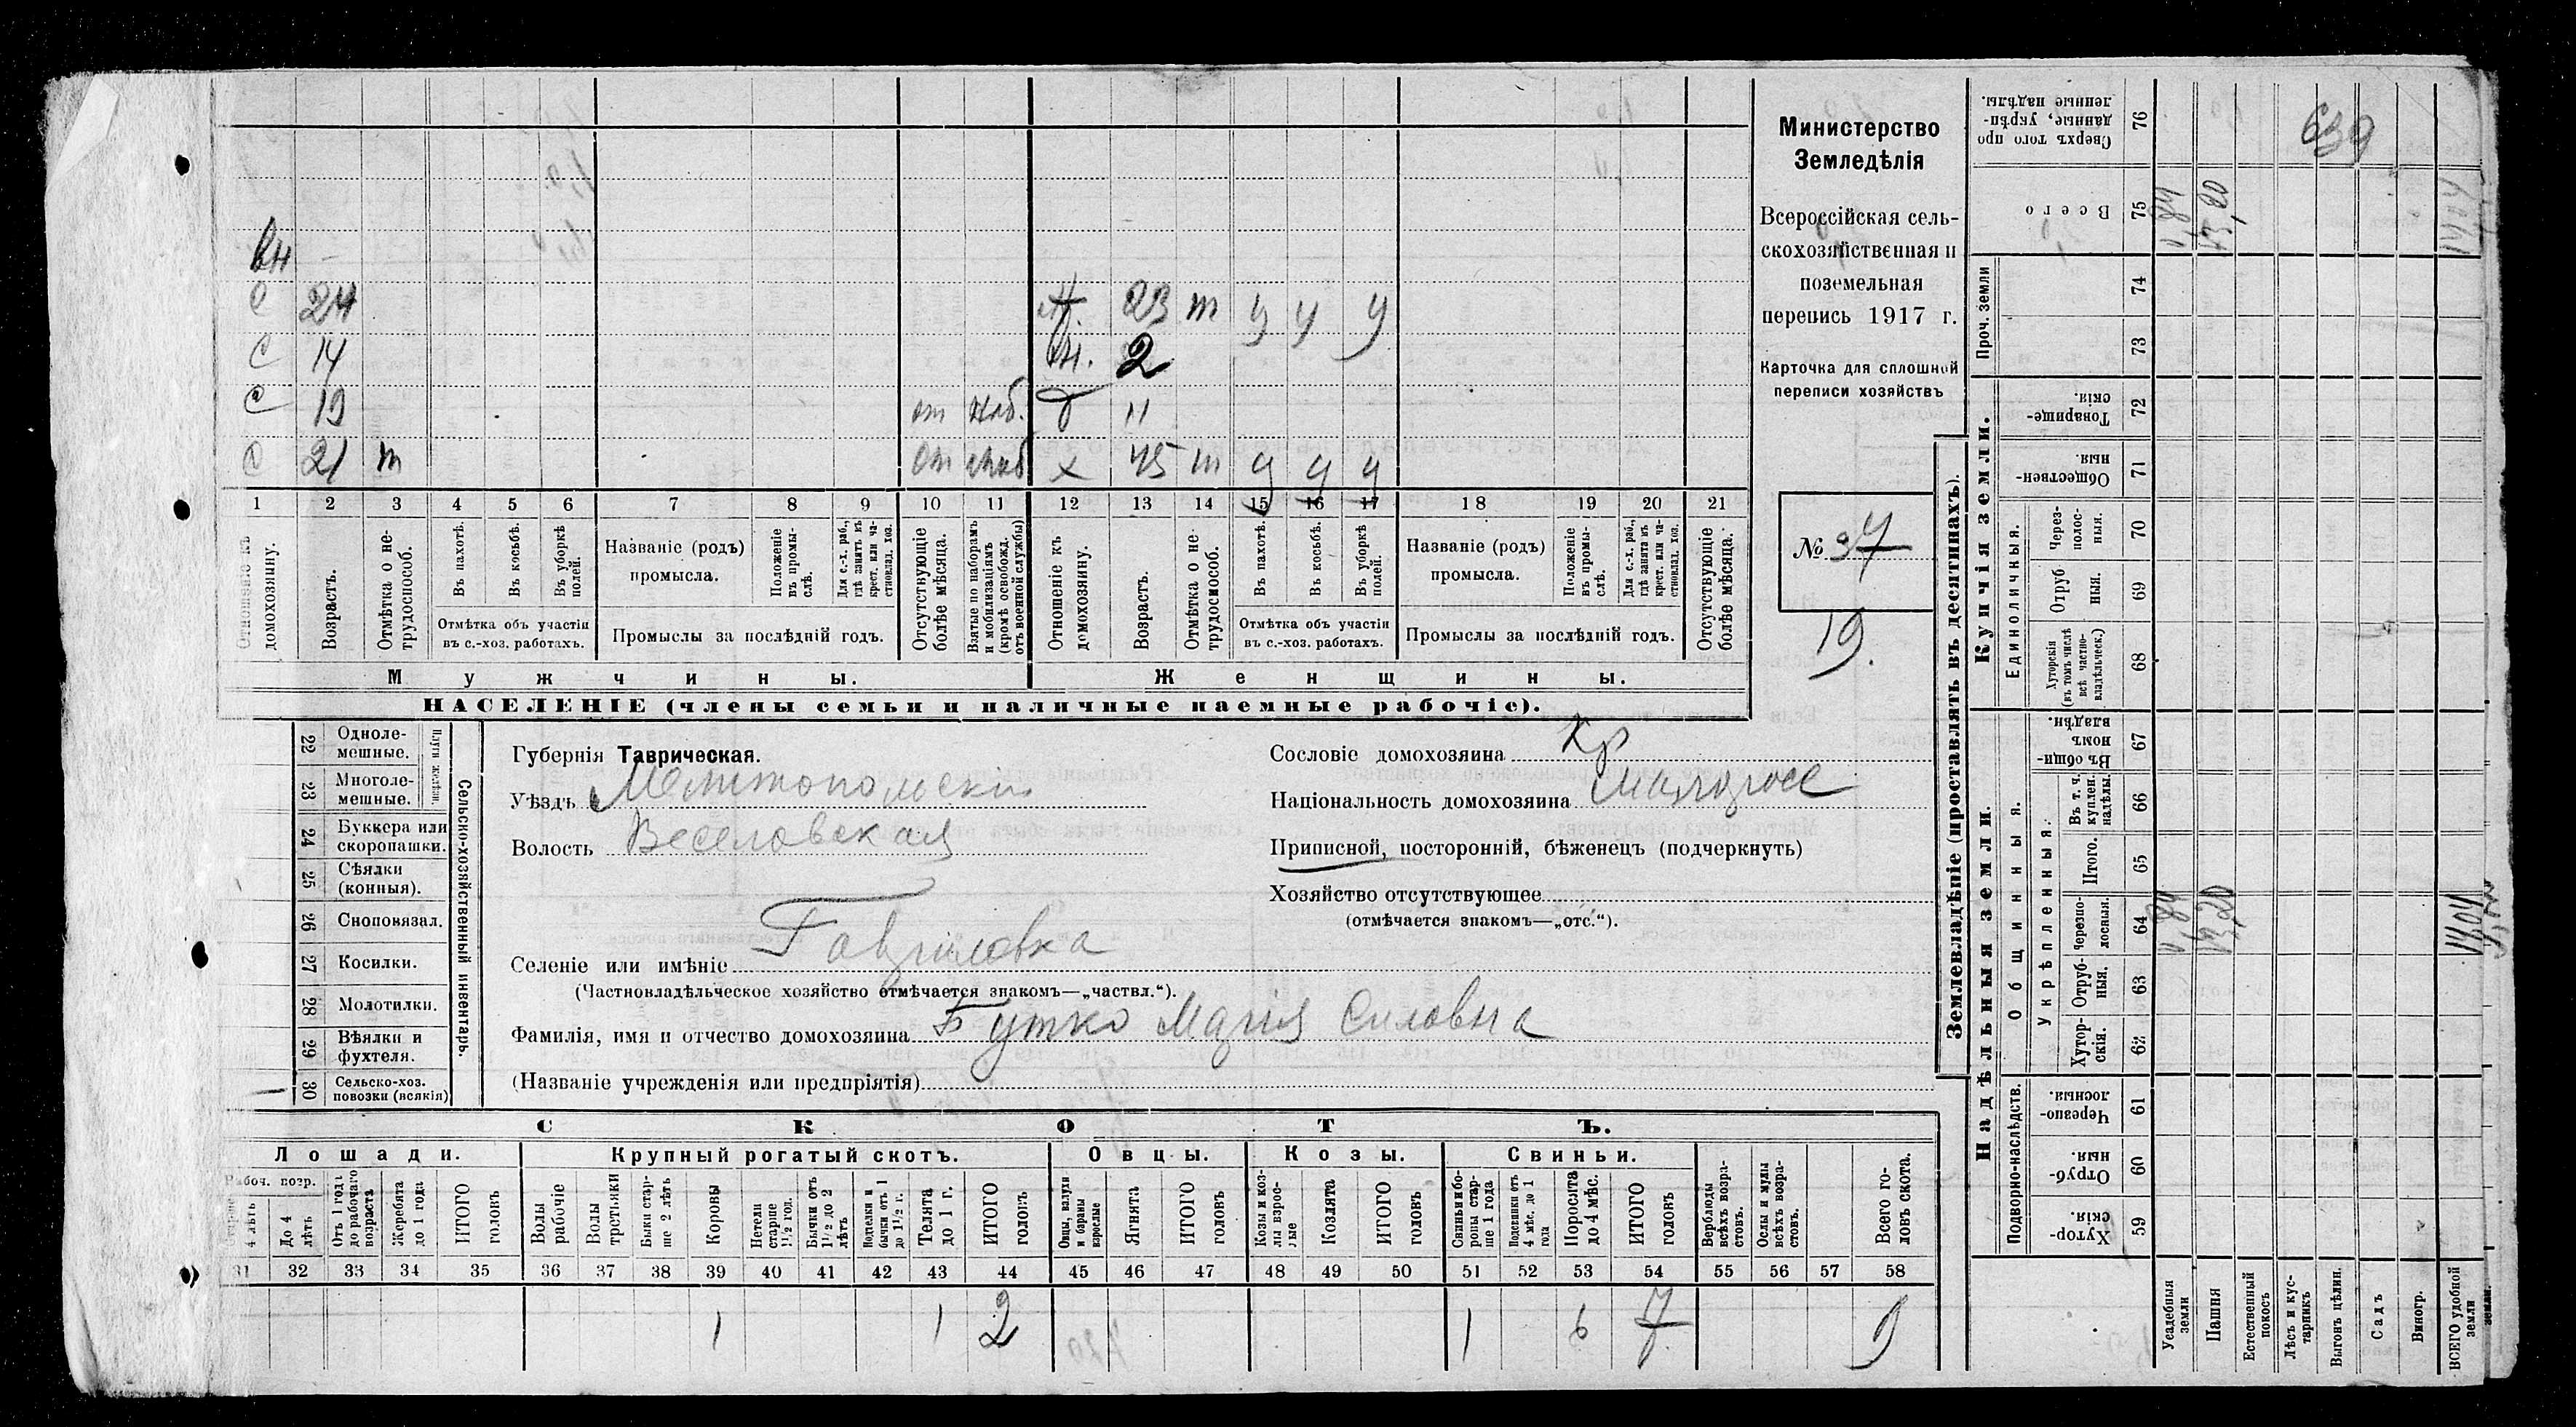 639
Министерство
Земледѣлія
Всероссійская сель-
скохозяйственная и
поземельная
перепись 1917 г.
Карточка для сплошной
переписи хозяйствъ
№ 37
19.
вн
с 24 23 т у у у
с 14 вн. 2
с 19 от моб. 11
с 21 т от моб х 45 т у у у
1 2 3 4 5 6 7 8 9 10 11 12 13 14 15 16 17 18 19 20 21
Отношеніе къ домохозяину.
Возрастъ.
Отмѣтка о не-
трудоспособ.
Въ пахотѣ.
Въ косьбѣ.
Въ уборкѣ
полей.
Отмѣтка объ участіи
въ с.-хоз. работахъ.
Названіе (родъ)
промысла.
Положеніе
въ промы-
слѣ.
Для с.-х. раб.,
гдѣ занятъ въ
крест. или ча-
стновлад. хоз.
Промыслы за послѣдній годъ.
Отсутствующіе
болѣе мѣсяца.
Взятые по наборамъ
и мобилизаціямъ
(кромѣ освобожд.
отъ военной службы)
Отношеніе къ
домохозяину.
Возрастъ.
Отмѣтка о не-
трудоспособ.
Въ пахотѣ.
Въ косьбѣ.
Въ уборкѣ
полей.
Отмѣтка объ участіи
въ с.-хоз. работахъ.
Названіе (родъ)
промысла.
Положеніе
въ промы-
слѣ.
Для с.-х. раб.,
гдѣ занята въ
крест. или ча-
стновлад. хоз.
Промыслы за послѣдній годъ.
Отсутствующіе
болѣе мѣсяца.
Мужчины. Женщины.
НАСЕЛЕНІЕ (члены семьи и наличные наемные рабочіе).
22 Одноле-
мешные.
23 Многоле-
мешные.
Плуги желѣзн.
24 Буккера или
скоропашки.
25 Сѣялки
(конныя).
26 Сноповязал.
27 Косилки.
28 Молотилки.
29 Вѣялки и
фухтеля.
30 Сельско-хоз.
повозки (всякія)
Сельско-хозяйственный инвентарь.
Губернія Таврическая.
Уѣздъ Мелитопольскій
Волость Веселовская
Сословіе домохозяина Кр
Національность домохозяина малоросс
Приписной, посторонній, бѣженецъ (подчеркнуть)
Хозяйство отсутствующее
(отмѣчается знакомъ—„отс.“).
Селеніе или имѣніе Гавриловка
(Частновладѣльческое хозяйство отмѣчается знакомъ—„частвл.“).
Фамилія, имя и отчество домохозяина Бутко Марія Силовна
(Названіе учрежденія или предпріятія)
СКОТЪ.
Лошади. Крупный рогатый скотъ. Овцы. Козы. Свиньи.
Рабоч. возр.
Старше
4 лѣтъ
До 4
лѣтъ
Отъ 1 года
до рабочаго
возраста
Жеребята
до 1 года
ИТОГО
головъ
Волы
рабочіе
Волы
третьяки
Быки стар-
ше 2 лѣтъ
Коровы
Нетели
старше
1½ год.
Бычки отъ
1½ до 2
лѣтъ
Подтелки и
бычки отъ 1
до 1½ г.
Телята
до 1 г.
ИТОГО
головъ
Овцы, валухи
и бараны
взрослые
Ягнята
ИТОГО
головъ
Козы и коз-
лы взрос-
лые
Козлята
ИТОГО
головъ
Свиньи и бо-
ровы стар-
ше 1 года
Подсвинки отъ
4 мѣс. до 1
года
Поросята
до 4 мѣс.
ИТОГО
головъ
Верблюды
всѣхъ возра-
стовъ.
Ослы и мулы
всѣхъ возра-
стовъ.
Всего го-
ловъ скота.
31 32 33 34 35 36 37 38 39 40 41 42 43 44 45 46 47 48 49 50 51 52 53 54 55 56 57 58
1 1 2 1 6 7 9
Землевладѣніе (проставлять въ десятинахъ).
Купчія земли.
Надѣльныя земли.
Сверхъ того про
данные, укрѣп-
ленные надѣлы. 76
Всего 75 0,84 13,20 14,04
Проч. земли 74 73
Товарище-
скія. 72
Обществен-
ныя. 71
Единоличныя.
Через-
полос-
ныя. 70
Отруб
ныя. 69
Хуторскія
(въ томъ числѣ
всѣ частно-
владѣльческ.) 68
Общинныя.
Въ общи-
номъ
владѣн. 67
Укрѣпленныя.
Въ т. ч.
куплен.
надѣлы. 66
Итого. 65
Черезпо-
лосныя. 64 0,84 13,20 14,04
Отруб-
ныя. 63
Хутор-
скія. 62
Подворно-наслѣдств.
Черезпо-
лосныя. 61
Отруб-
ныя. 60
Хутор-
скія. 59
Усадебныя
земли
Пашня
Естественный
покосъ
Лѣсъ и кус-
тарникъ
Выгонъ цѣлин.
Садъ
Виногр.
ВСЕГО удобной
земли